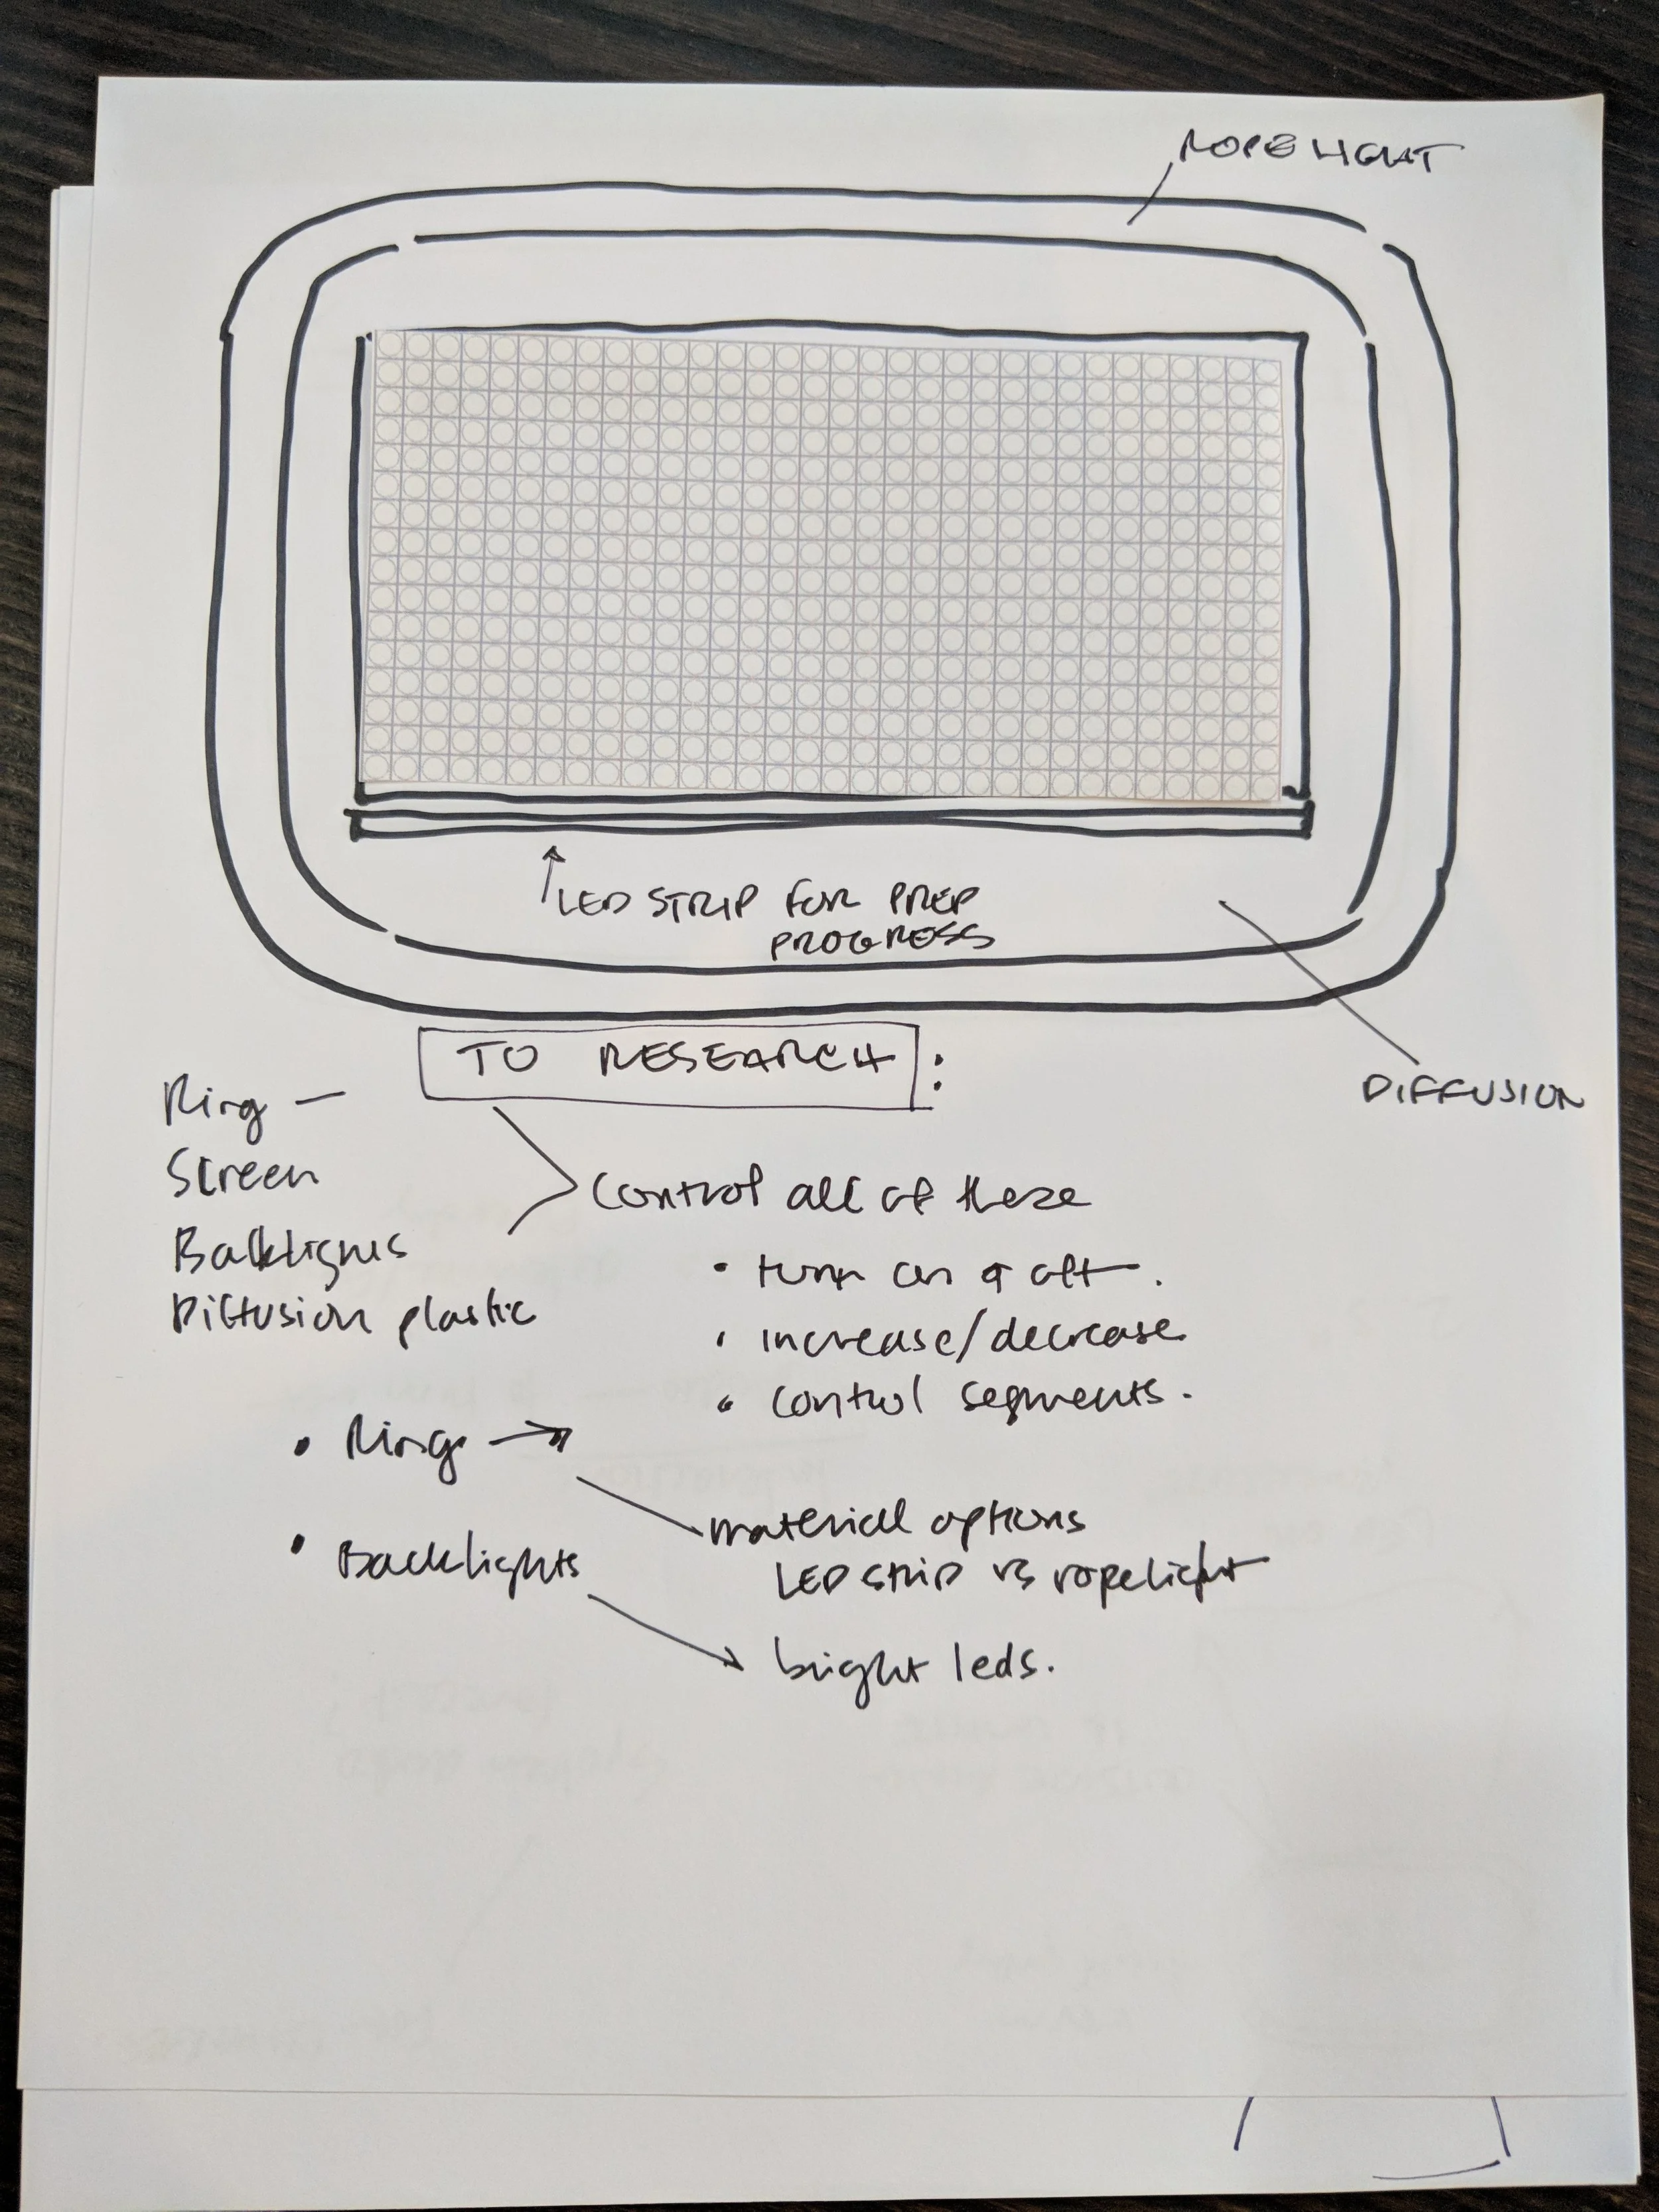 ROPE LIGHT
LED STRIP FOR PREP
PROGRESS
DIFFUSION
TO RESEARCH:
Ring —
Screen
Backlights
Diffusion plastic
Control all of these
• turn on & off.
• increase/decrease
• control segments.
• Ring →
material options
LED strip vs ropelight
• Backlights
bright leds.